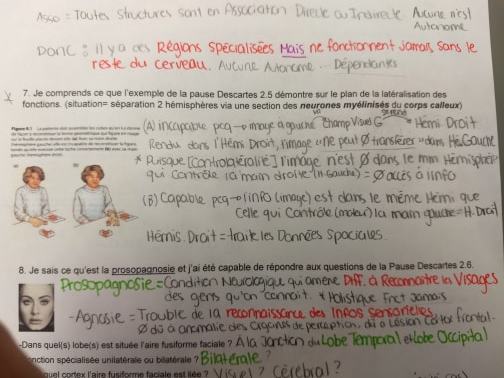 Asso = Toutes structures sont en Association Directe ou Indirecte Aucune n'est Autonome
Donc : il y a des Régions Spécialisées Mais ne fonctionnent jamais sans le
reste du cerveau. Aucune Autonome... Dépendantes
7. Je comprends ce que l'exemple de la pause Descartes 2.5 démontre sur le plan de la latéralisation des
fonctions. (situation= séparation 2 hémisphères via une section des neurones myélinisés du corps calleux)
(A) incapable pcq → image à gauche Champ Visuel G Hémi Droit
Rendu dans l'Hémi Droit, l'image "ne peut Ø transférer" dans Hé.Gauche
* Puisque [controlatéralité] l'image n'est Ø dans le mm Hémisphère
qui contrôle la main droite (H.Gauche) = Ø accès à l'info
(B) Capable pcq → l'info (image) est dans le même Hémi que
celle qui contrôle (moteur) la main gauche = H.Droit
Hémis. Droit = traite les Données Spaciales.
8. Je sais ce qu'est la prosopagnosie et j'ai été capable de répondre aux questions de la Pause Descartes 2.6.
Prosopagnosie = Condition Neurologique qui amène Diff. à Reconnaître les Visages
des gens qu'on connaît. * Holistique Fnct Jamais
- Agnosie = Trouble de la reconnaissance des Infos sensorielles
Ø dû à anomalie des organes de perception, dû à Lésion Cortex frontal-
-Dans quel(s) lobe(s) est située l'aire fusiforme faciale ? À la Jonction du Lobe Temporal et Lobe Occipital
onction spécialisée unilatérale ou bilatérale ? Bilatérale ?
quel cortex l'aire fusiforme faciale est liée ? Visuel ? Cérébral ?